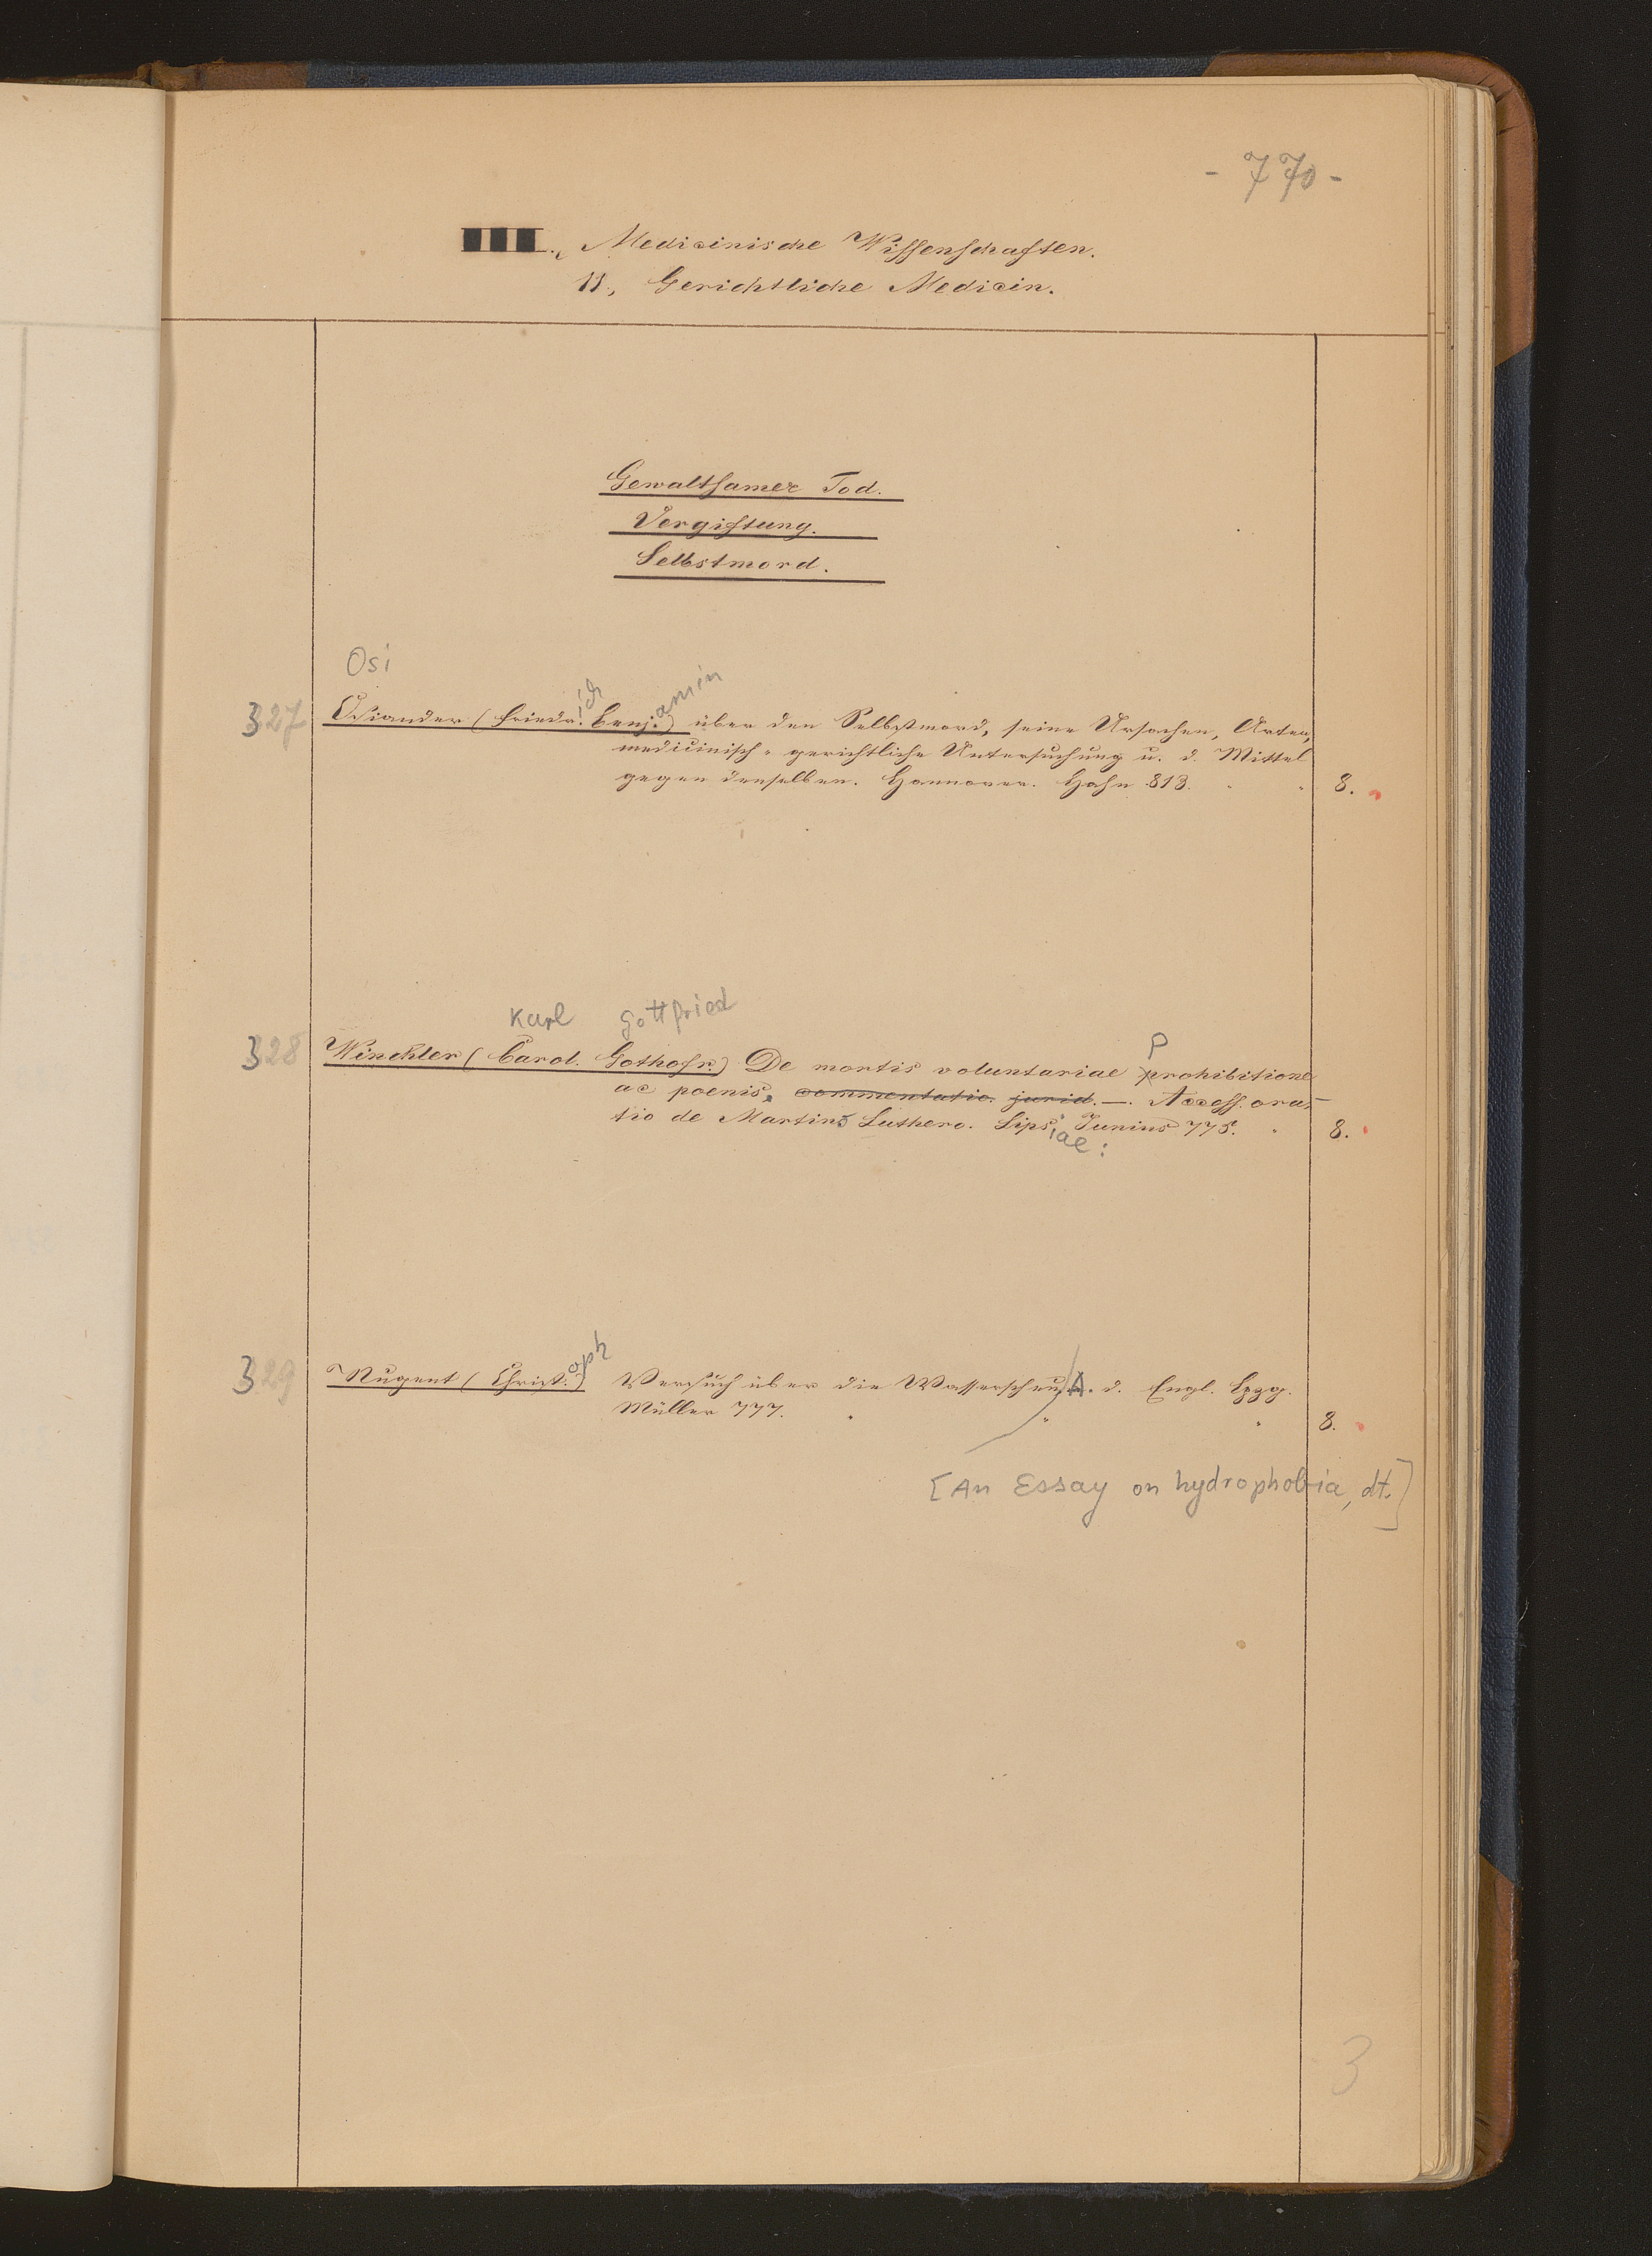 - 770 -
III., Medicinische Wissenschaften.
11., Gerichtliche Medicin.
Gewaltsamer Tod.
Vergiftung.
Selbstmord.
Osi
ich amin
327 Osiander (Friedr. Benj.) über den Selbstmord, seine Ursachen, Arten,
medicinisch-gerichtliche Untersuchung u. d. Mittel
gegen denselben. Hannover. Hahn 813. 8.
Karl Gottfried
P
328 Winckler (Carol. Gothofr.) De mortis voluntariae prohibitione
ac poenis, commentatio. jurid. —. Access. ora-
tio de Martino Luthero. Lips. Junius 775. 8.
iae:
oph
329 Nugent (Christ.) Versuch über die Wasserscheu, A. d. Engl. Lpzg.
Müller 777. 8.
[An Essay on hydrophobia, dt.]
3